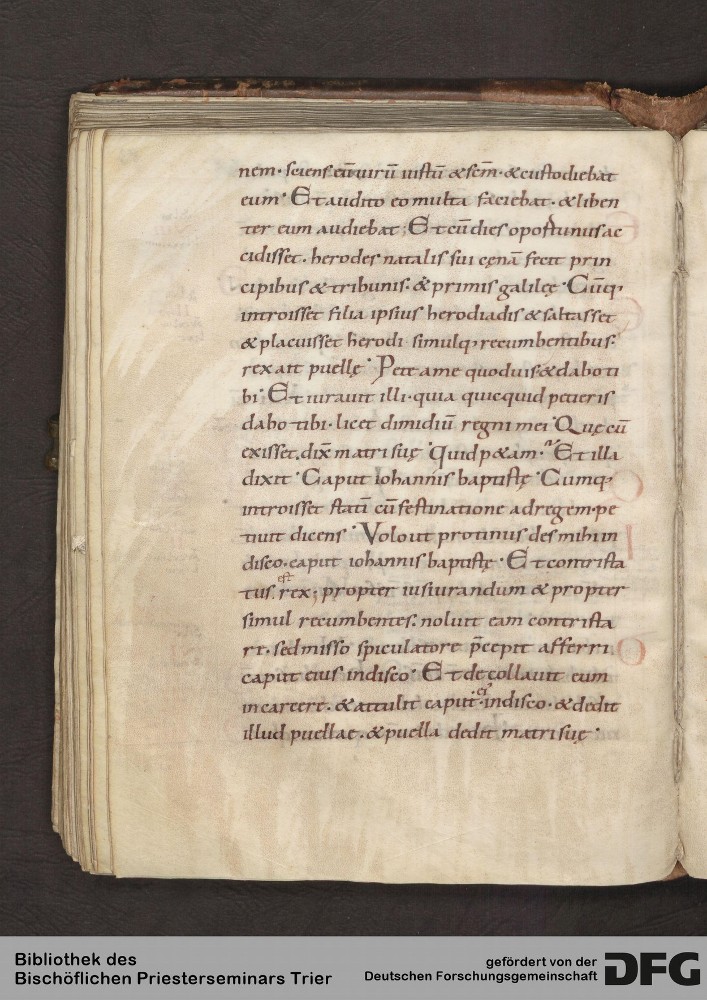 nem· sciens eū virū iustū &scm̄· &custodiebat
eum· Et audito eo multa faciebat· &liben
ter eum audiebat; Et cū dies oportunus ac
cidisset· herodes natalis sui cęnā fecit prin
cipibus &tribunis· & primis galileę· Cūq;
introisset filia ipsius herodiadis &saltasset
&placuisset herodi simulq; recumbentibus·
rex ait puellę· Pete a me quod vis &dabo ti
bi· Et iuravit illi· quia quicquid petieris
dabo tibi· licet dimidiū regni mei· Quę cū
exisset, dix̄ matri suę· Quid p&am· Et illa
dixit· Caput iohannis baptistę· Cumq;
introisset statī cū festinatione ad regem· pe
tivit dicens· Volo ut protinus des mihi in
disco· caput iohannis baptistę· Et contrista
tus ÷ rex; propter iusiurandum & propter
simul recumbentes: noluit eam contrista
re· sed misso spiculatore p̄cepit afferri
caput eius in disco· Et decollavit eum
in carcere· &attulit caput ei' in disco· &dedit
illud puellae· &puella dedit matri suę·
Bibliothek des
Bischöflichen Priesterseminars Trier
gefördert von der
Deutschen Forschungsgemeinschaft
DFG